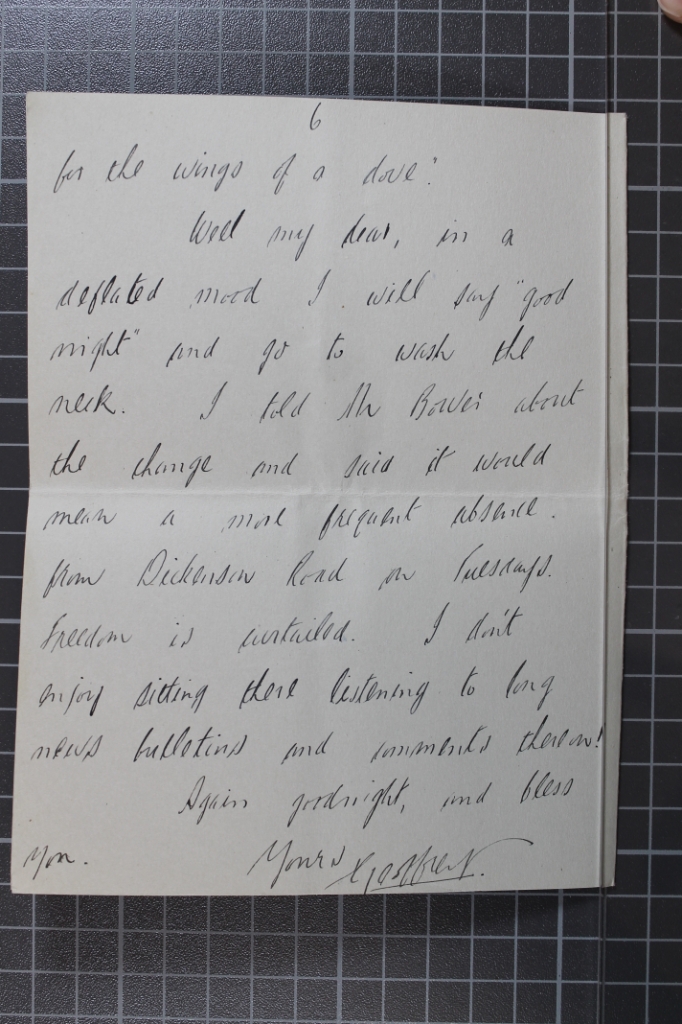 6
for the wings of a dove".
Well my dear, in a
deflated mood I will say "good
night" and go to wash the
neck. I told Mr Bower about
the change and said it would
mean a more frequent absence.
from Dickenson Road on Tuesdays.
Freedom is curtailed. I don't
enjoy sitting there listening to long
news bulletins and comments thereon!
Again goodnight, and bless
you. Yours Geoffrey.